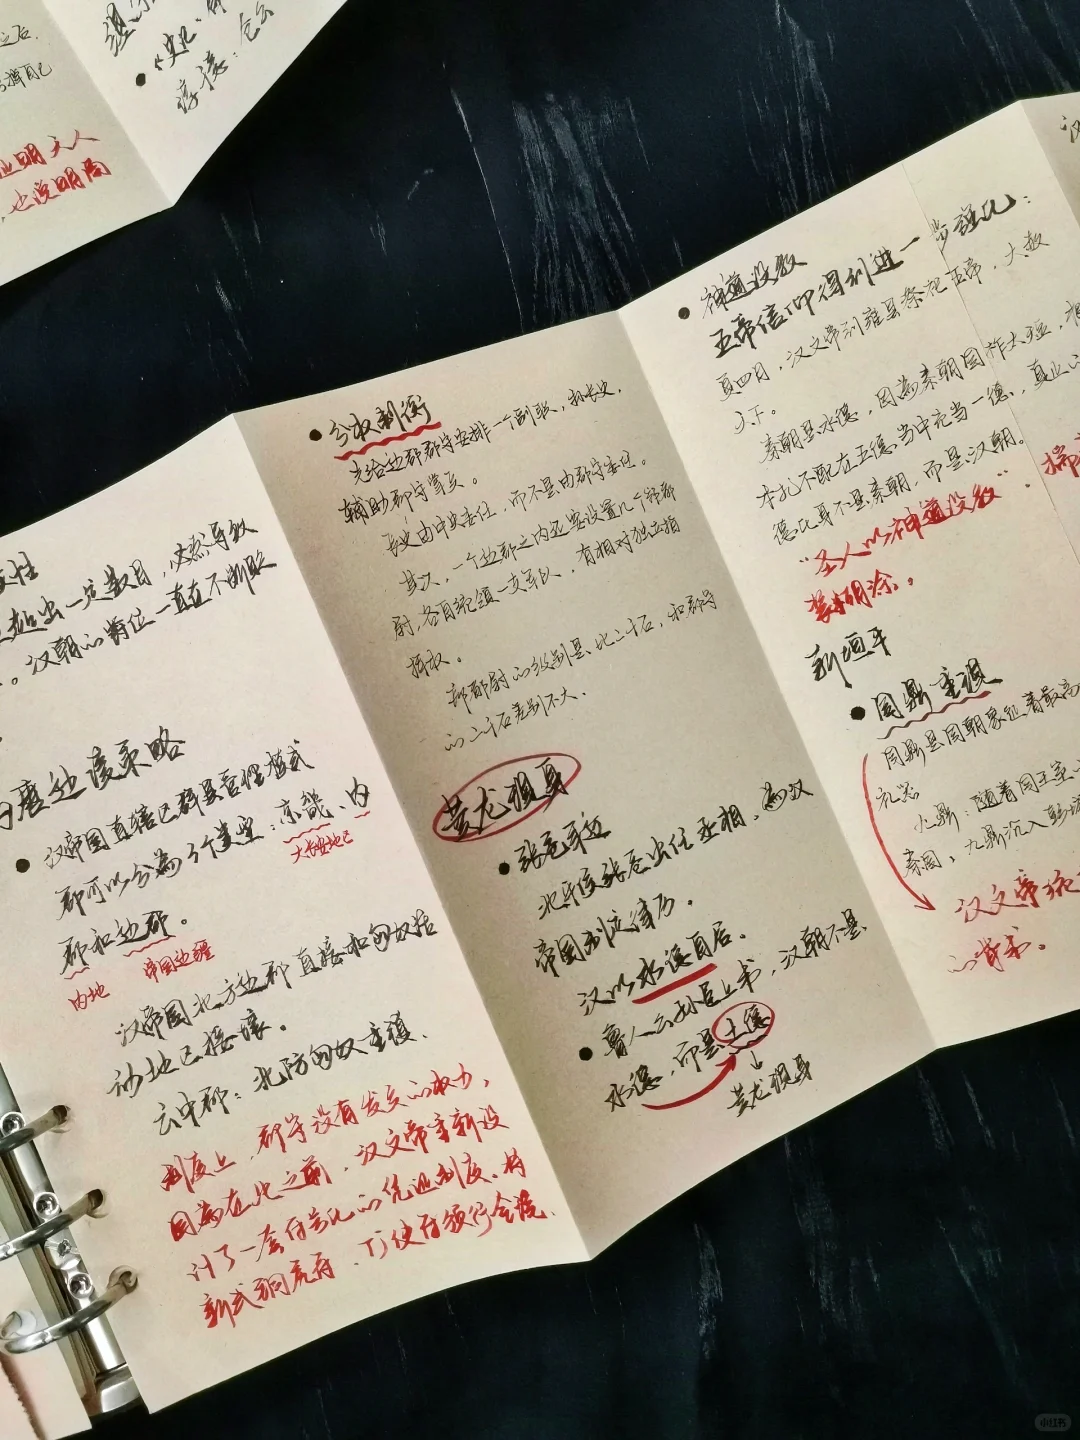 之后.
《史记》
惇德：
也说明
性
超出一定数目，必然导致
。汉朝的爵位一直在不断贬
边陲策略
● 汉帝国直辖区郡县管理模式
郡可以分为3个类型：京畿、内
大长安地区
郡和边郡。
内地
帝国边疆
汉帝国北方边郡直接和匈奴活
动地区接壤。
云中郡：北防匈奴重镇.
制度上，郡守没有发兵的权力，
因为在此之前，汉文帝重新设
计了一套符节化的凭证制度.将
新式铜虎符、竹使符颁行全境.
● 分权制衡
先给边郡郡守安排一个副职，叫长史，
辅助郡守掌兵。
长史由中央委任，而不是由郡守委任。
其次，一个边郡之内还要设置几个部都
尉，各自统领一支军队，有相对独立指
挥权。
部都尉的级别是比二千石，和郡守
的二千石差别不大.
黄龙现身
● 张苍牵边
北平侯张苍出任丞相，为汉
帝国制定律历。
汉以水德自居。
● 鲁人公孙臣上书，汉朝不是
水德，而是土德
↓
黄龙现身
● 神道设教
五帝信仰得到进一步强化：
夏四月，汉文帝到雍县祭祀五帝，大赦
天下。
秦朝是水德，因为秦朝国祚太短，
本就不配在五德当中充当一德，真正
德比身不是秦朝，而是汉朝。
“圣人以神道设教”.
装糊涂。
新垣平
● 周鼎重现
周鼎是周朝象征着最高
礼器
九鼎：随着周王室
秦国，九鼎沉入彭城
汉文帝统
的背书。